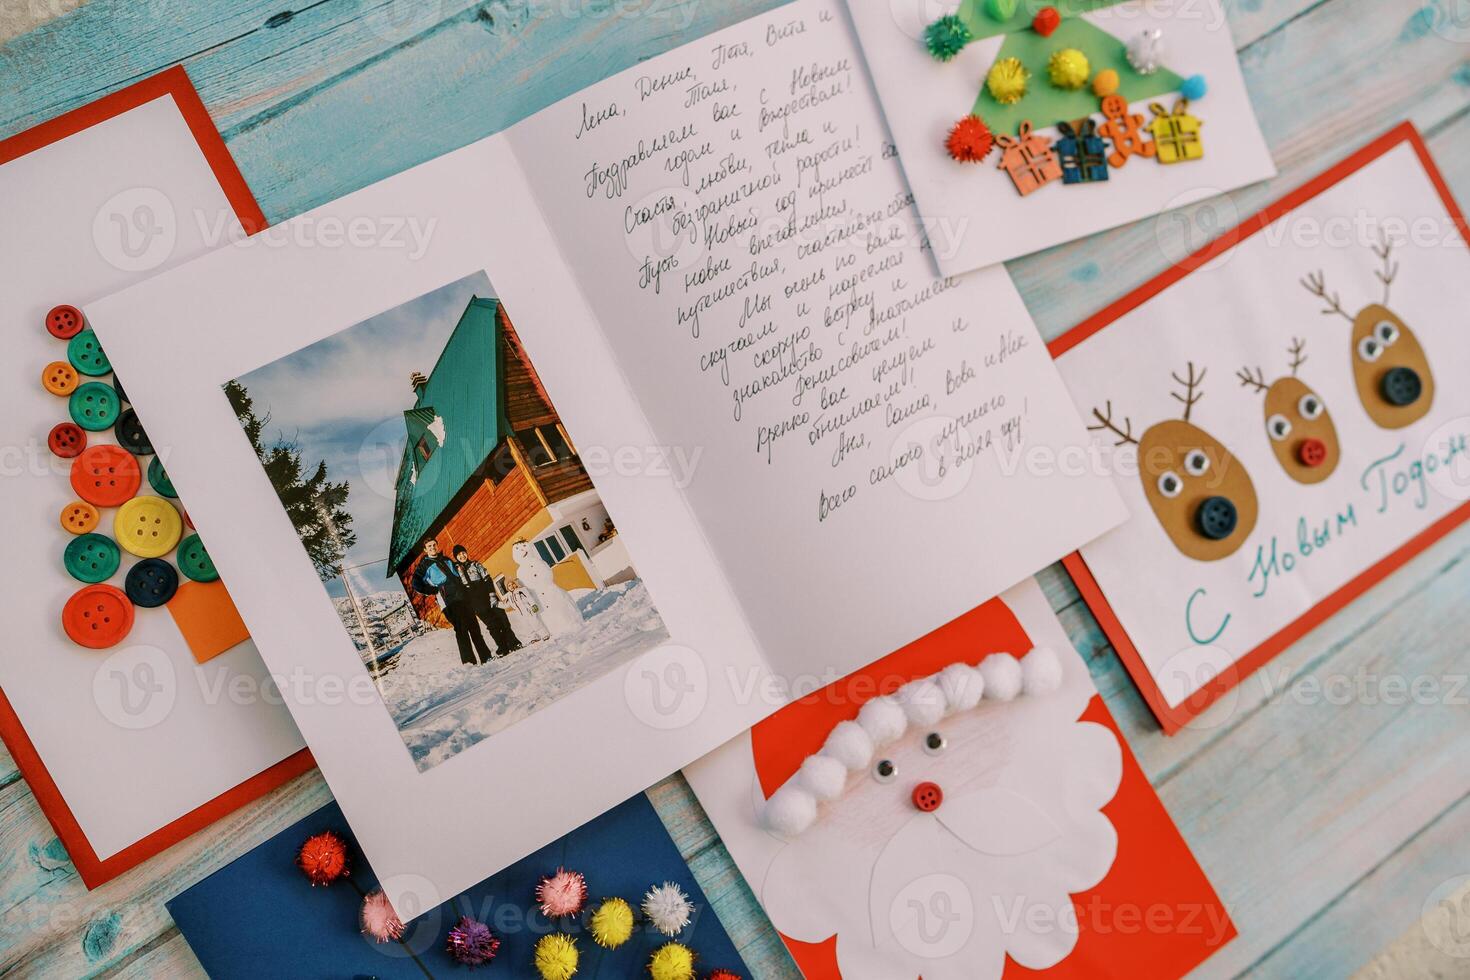 Лена, Денис, Петя, Витя и
Толя,
Поздравляем вас с Новым
годом и Рождеством!
Счастья, любви, тепла и
безграничной радости!
Пусть Новый год принесёт вам
новые впечатления,
путешествия, счастливые
Мы очень по вам
скучаем и надеемся н
скорую встречу и
знакомство с Анатолием
Денисовичем!
Крепко вас целуем и
обнимаем!
Аня, Саша, Вова и Айк
Всего самого лучшего
в 2022 году!
С Новым Годом
Vecteezy